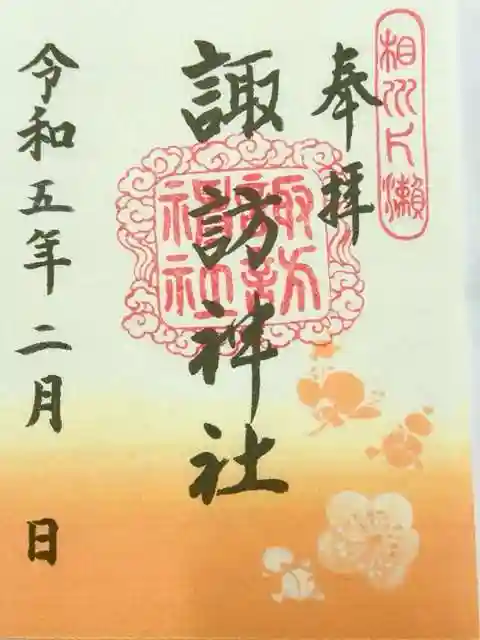 相州片瀬
奉拝
諏訪神社
諏訪神社
令和五年二月 日